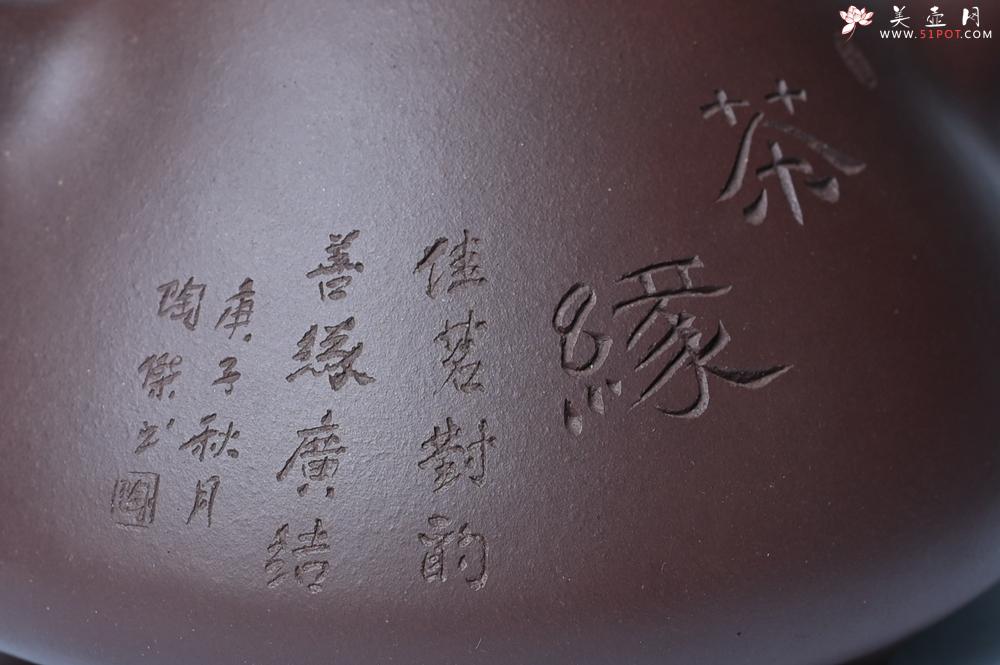 美壶网
WWW.51POT.COM
茶
緣
佳茗對韵
善緣廣结
庚子秋月
陶傑书
陶